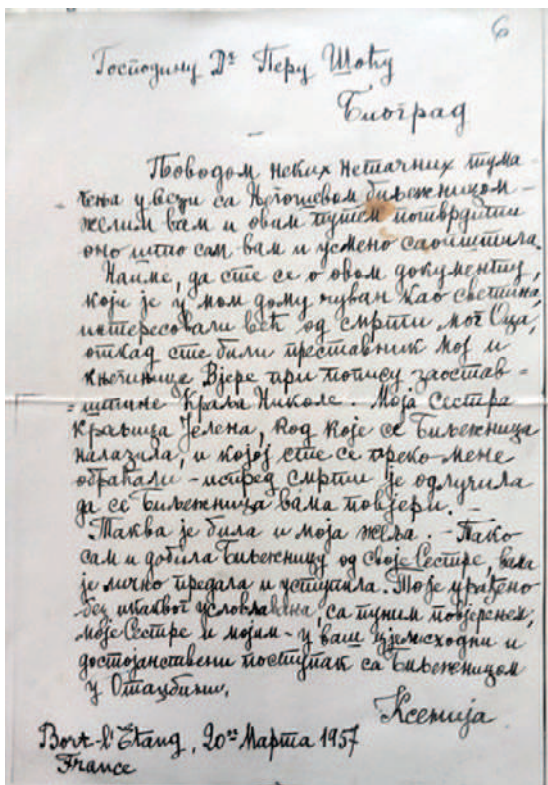 6
Господину Др Перу Шоћу
Београд
Поводом неких нетачних тума-
чења у вези са Његошевом биљежницом -
желим вам и овам путем потврдити
оно што сам вам и усмено саопштила.
Наиме, да сте се о овом документу,
који је у мом дому чуван као светиња,
интересовали већ од смрти мог Оца,
откад сте били преставник мој и
књегињице Вјере при попису заостав =
= штине Краља Николе. Моја Сестра
Краљица Јелена, код које се Биљежница
налазила, и којој сте се преко мене
обраћали - испред смрти је одлучила
да се Биљежница вама повјери. -
Таква је била и моја жеља. - Пако
сам и добила Биљежницу од своје Сестре, вама
је лично предала и уступила. То је урађено
без икаквог условљавања, са пуним повјерењем,
моје Сестре и мојим - у ваш цјелисходни и
достојанствени поступак са Биљежницом
у Отаџбини.
Ксенија
Bort-l'Etang, 20ог Марта 1957
France